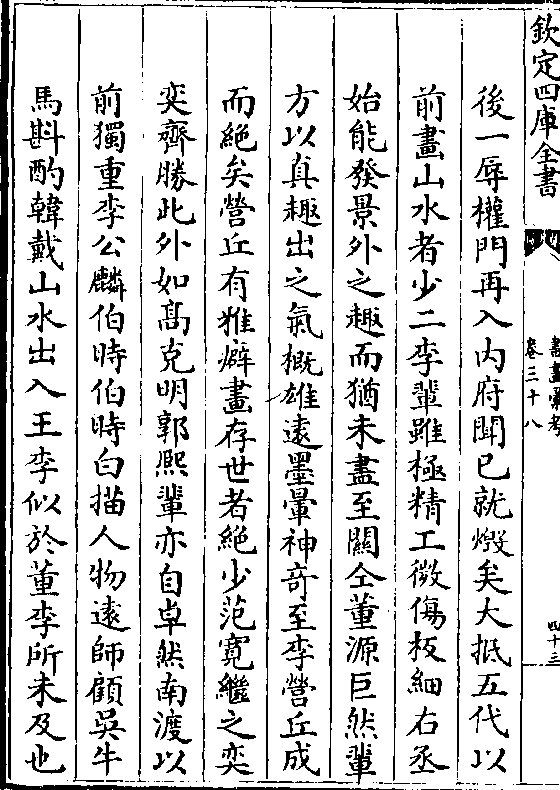 欽定四庫全書
書畫彙考
卷三十八
四十三
後一辱權門再入内府聞已就燬矣大抵五代以
前畫山水者少二李輩雖極精工微傷板細右丞
始能發景外之趣而猶未盡至關仝董源巨然輩
方以真趣出之氣概雄遠墨暈神竒至李營丘成
而絶矣營丘有雅癖畫存世者絶少范寛繼之奕
奕齊勝此外如髙克明郭熙輩亦自卓然南渡以
前獨重李公麟伯時伯時白描人物逺師顧吳牛
馬斟酌韓戴山水出入王李似於董李所未及也